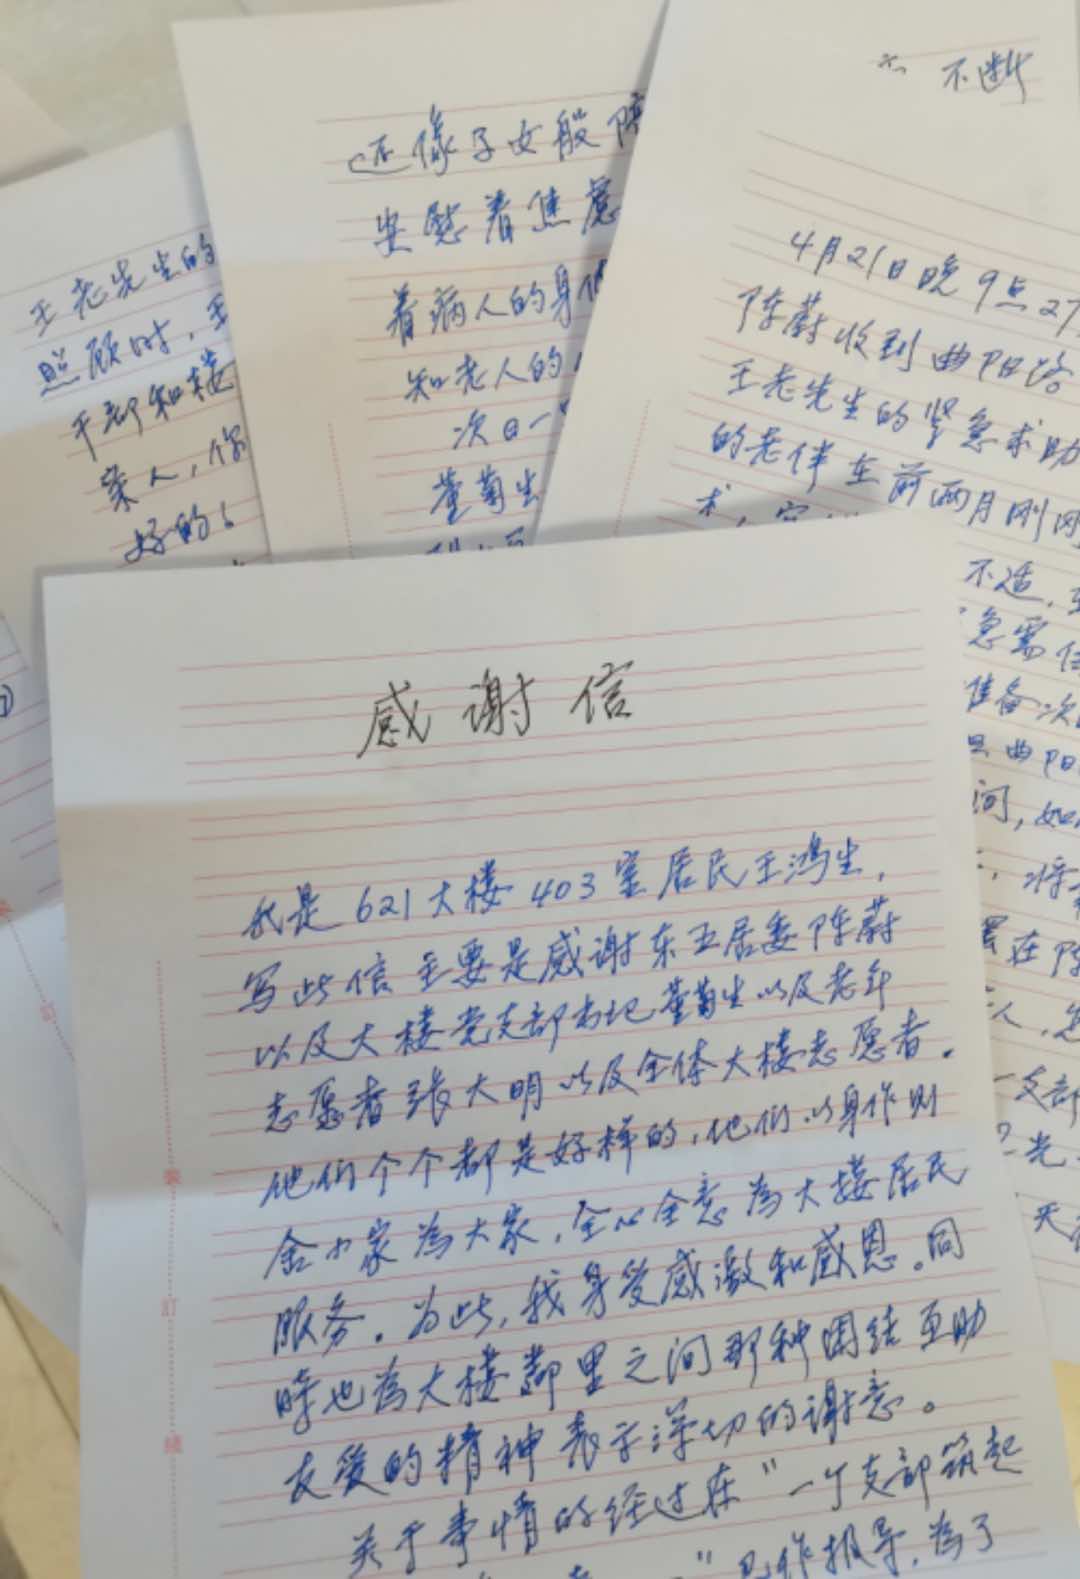 王老先生的
照顾时，王
干部和楼
亲人，你
好的！
还像子女般陪
安慰着焦虑
着病人的身体
知老人的
次日一
董菊生
不断
4月21日晚9点27
陈蔚收到曲阳路
王老先生的紧急求助
的老伴在前两月刚刚
术，
不适，
急需住
准备次
曲阳
问，如
，将
在陈
人，
支部
光
天
感谢信
我是621大楼403室居民王鸿生，
写此信主要是感谢东五居委陈蔚
以及大楼党支部书记董菊生以及老年
志愿者张大明以及全体大楼志愿者。
他们个个都是好样的，他们以身作则
舍小家為大家，全心全意為大楼居民
服务。为此，我身受感激和感恩。同
時也為大楼鄰里之间那种团结互助
友愛的精神表示深切的谢意。
关于事情的经过在“一个支部筑起
”已作报导，為了
装
訂
線